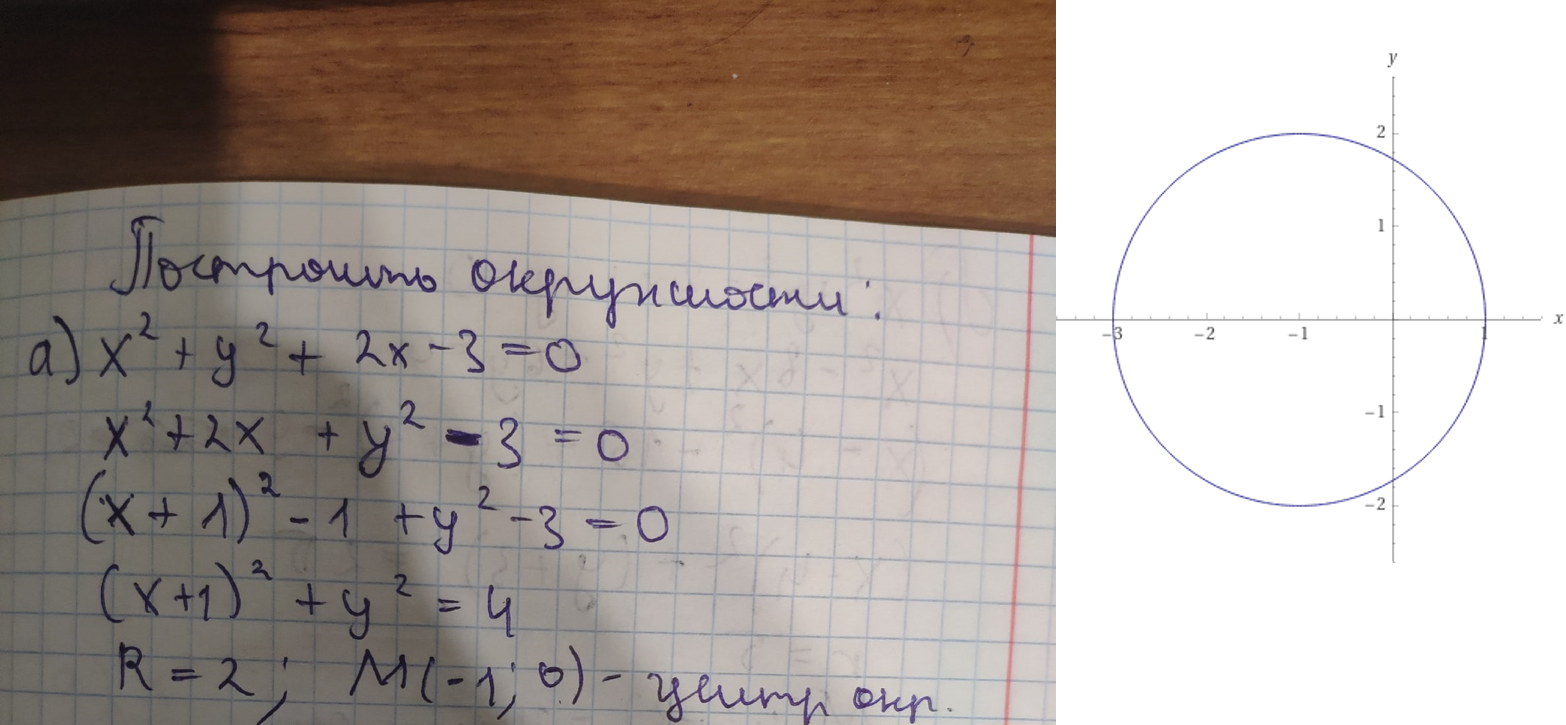 Построить окружности:
а) x² + y² + 2x - 3 = 0
x² + 2x + y² - 3 = 0
(x + 1)² - 1 + y² - 3 = 0
(x+1)² + y² = 4
R = 2; M(-1; 0) - центр окр.
y
2
1
-3 -2 -1 1 x
-1
-2